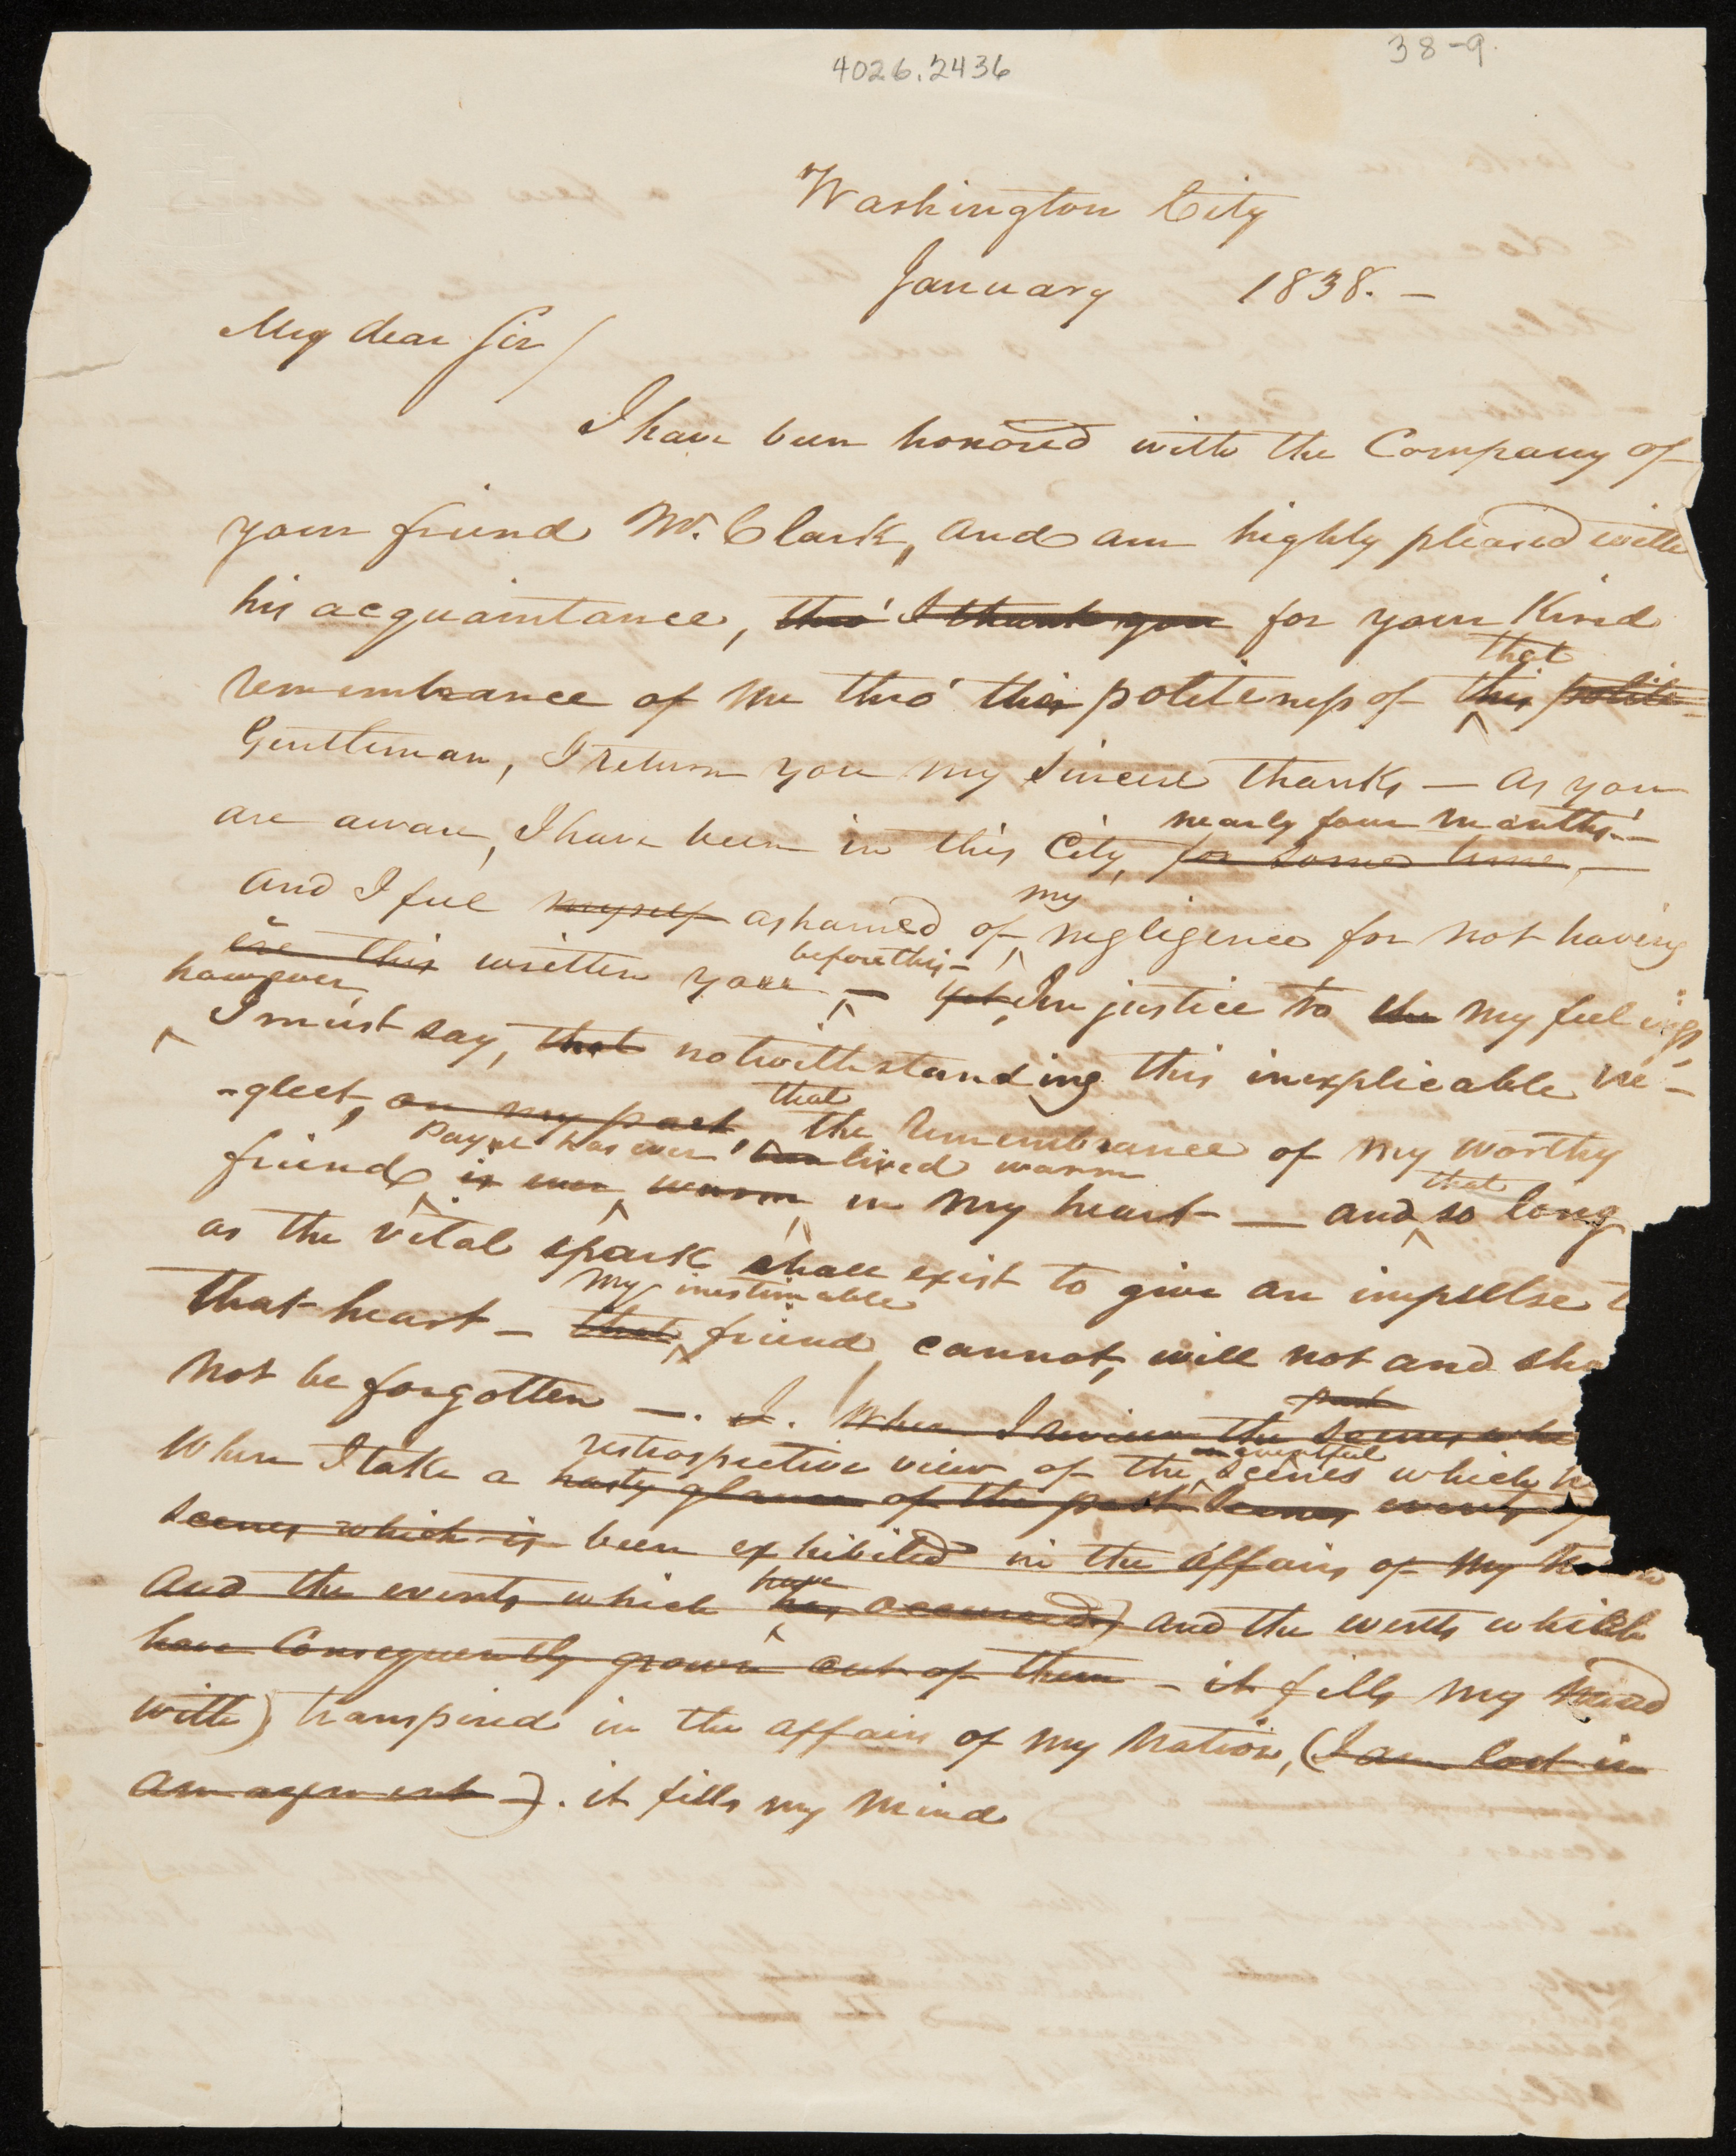 4026.2436
38-9.
Washington City
January 1838. —
My dear Sir/
I have been honored with the Company of
your friend Mr. Clark, and am highly pleased with
his acquaintance, thro' I thank you for your Kind
that
remembrance of me thro' this politeness of this polite
Gentleman, I return you my sincere thanks — as you
nearly four months. —
are aware, I have been in this City, for some time, —
my
and I feel myself ashamed of negligence for not having
before this —
ere this written you — yet, In justice to the my feelings,
however
I must say, that notwithstanding this inexplicable ne-
that
-glect, on my part, the remembrance of my worthy
Payne has ever lived warm
friend is ever warm in my heart — and so long
that
as the vital spark shall exist to give an impulse t
my inestimable
that heart — that friend cannot, will not and sha
not be forgotten —. I. When I review the scenes whi
past
retrospective view of the scenes which
uneventful
When I take a hasty glance of the past scenes events
scenes which is been exhibited in the affairs of my
have
and the events which has occurred) and the events which
have consequently grown out of them — it fills my mind
with) transpired in the affairs of my Nation, (I am lost in
amazement —). it fills my mind